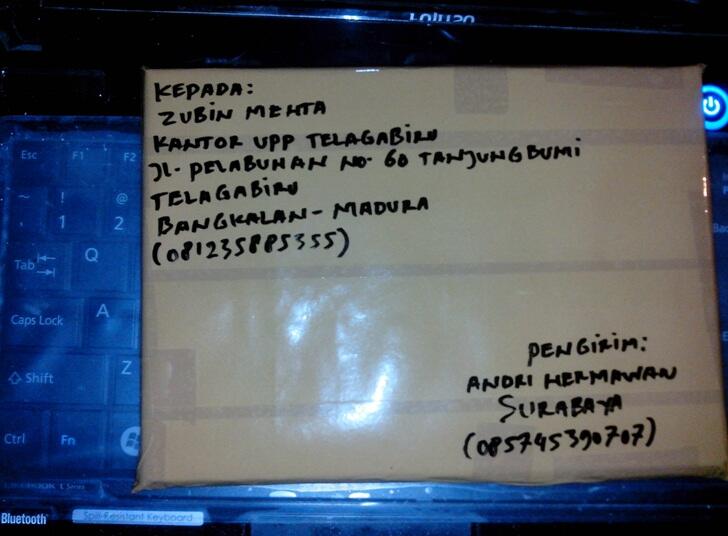 FUJITSU
KEPADA:
ZUBIN MEHTA
KANTOR UPP TELAGABIRU
JL. PELABUHAN NO. 60 TANJUNGBUMI
TELAGABIRU
BANGKALAN - MADURA
(081235885355)
PENGIRIM:
ANDRI HERMAWAN
SURABAYA
(085745390707)
Esc F1 F2
~ ! @
1 2
Tab Q
Caps Lock A
Shift Z
Ctrl Fn
Bluetooth
Spill-Resistant Keyboard